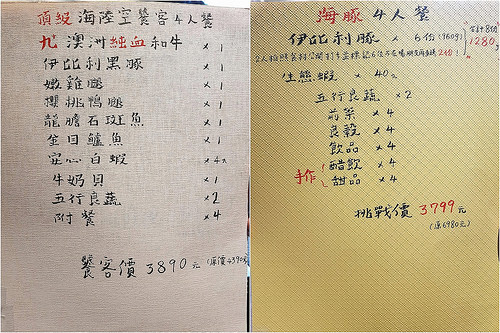 頂級海陸空饕客4人餐
九澳洲純血和牛 x 1
伊比利黑豚 x 1
嫩雞腿 x 1
櫻桃鴨腿 x 1
龍膽石斑魚 x 1
金目鱸魚 x 1
空心白蝦 x 4
牛奶貝 x 1
五行良蔬 x 2
附餐 x 4
饕客價 3890元 (原價4390元)
海豚4人餐
伊比利豚 x 6份(960g)
生態蝦 x 40
五行良蔬 x 2
前菜 x 4
良穀 x 4
飲品 x 4
手作 醋飲 x 4
甜品 x 4
挑戰價 3799元
(原6980元)